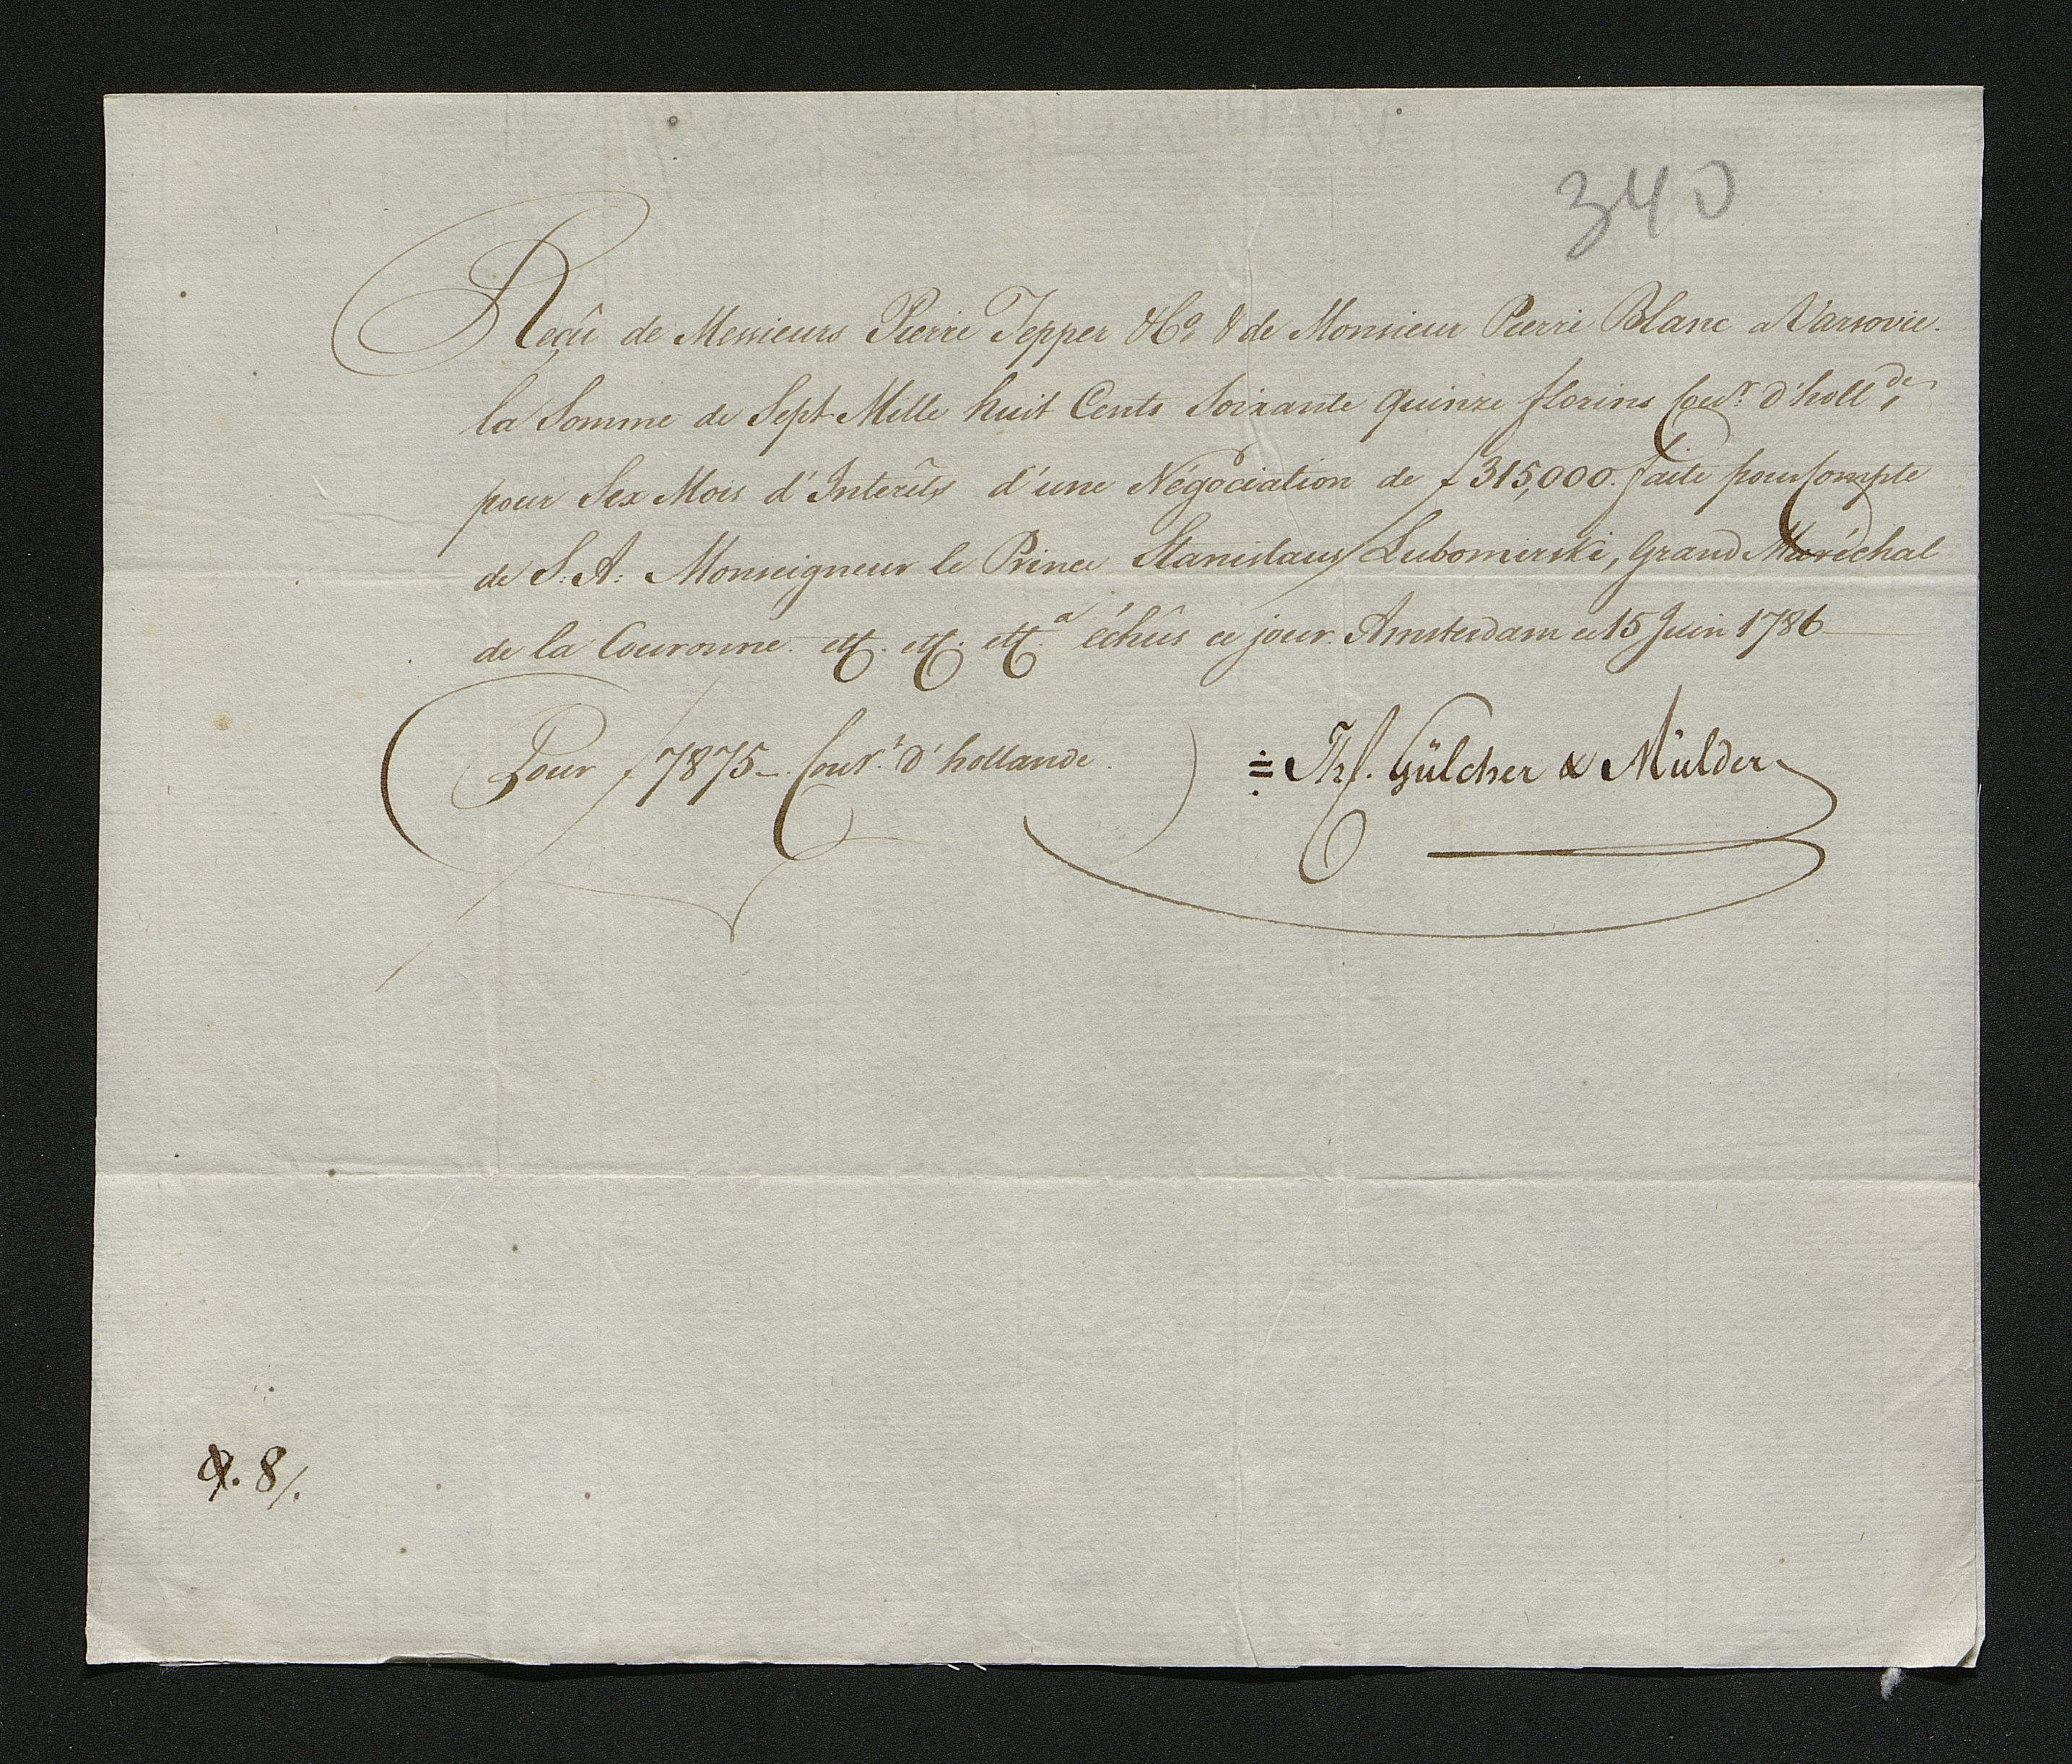 340
Reçû de Messieurs Pierre Tepper & Co. & de Monsieur Pierre Blanc a Varsovie.
la Somme de Sept Mille huit Cents Soixante quinze florins Cour.t d'holl.de
pour Six Mois d'Interêts d'une Négociation de f 315,000. faite pour Compte
de S: A: Monseigneur le Prince Stanislaus Lubomirski, Grand Maréchal
de la Couronne. ett. ett. ett.a échûs ce jour. Amsterdam ce 15 Juin 1786
Pour f 7875 –. Cour.t d'hollande. Th.s. Gülcher & Mülder
8/.